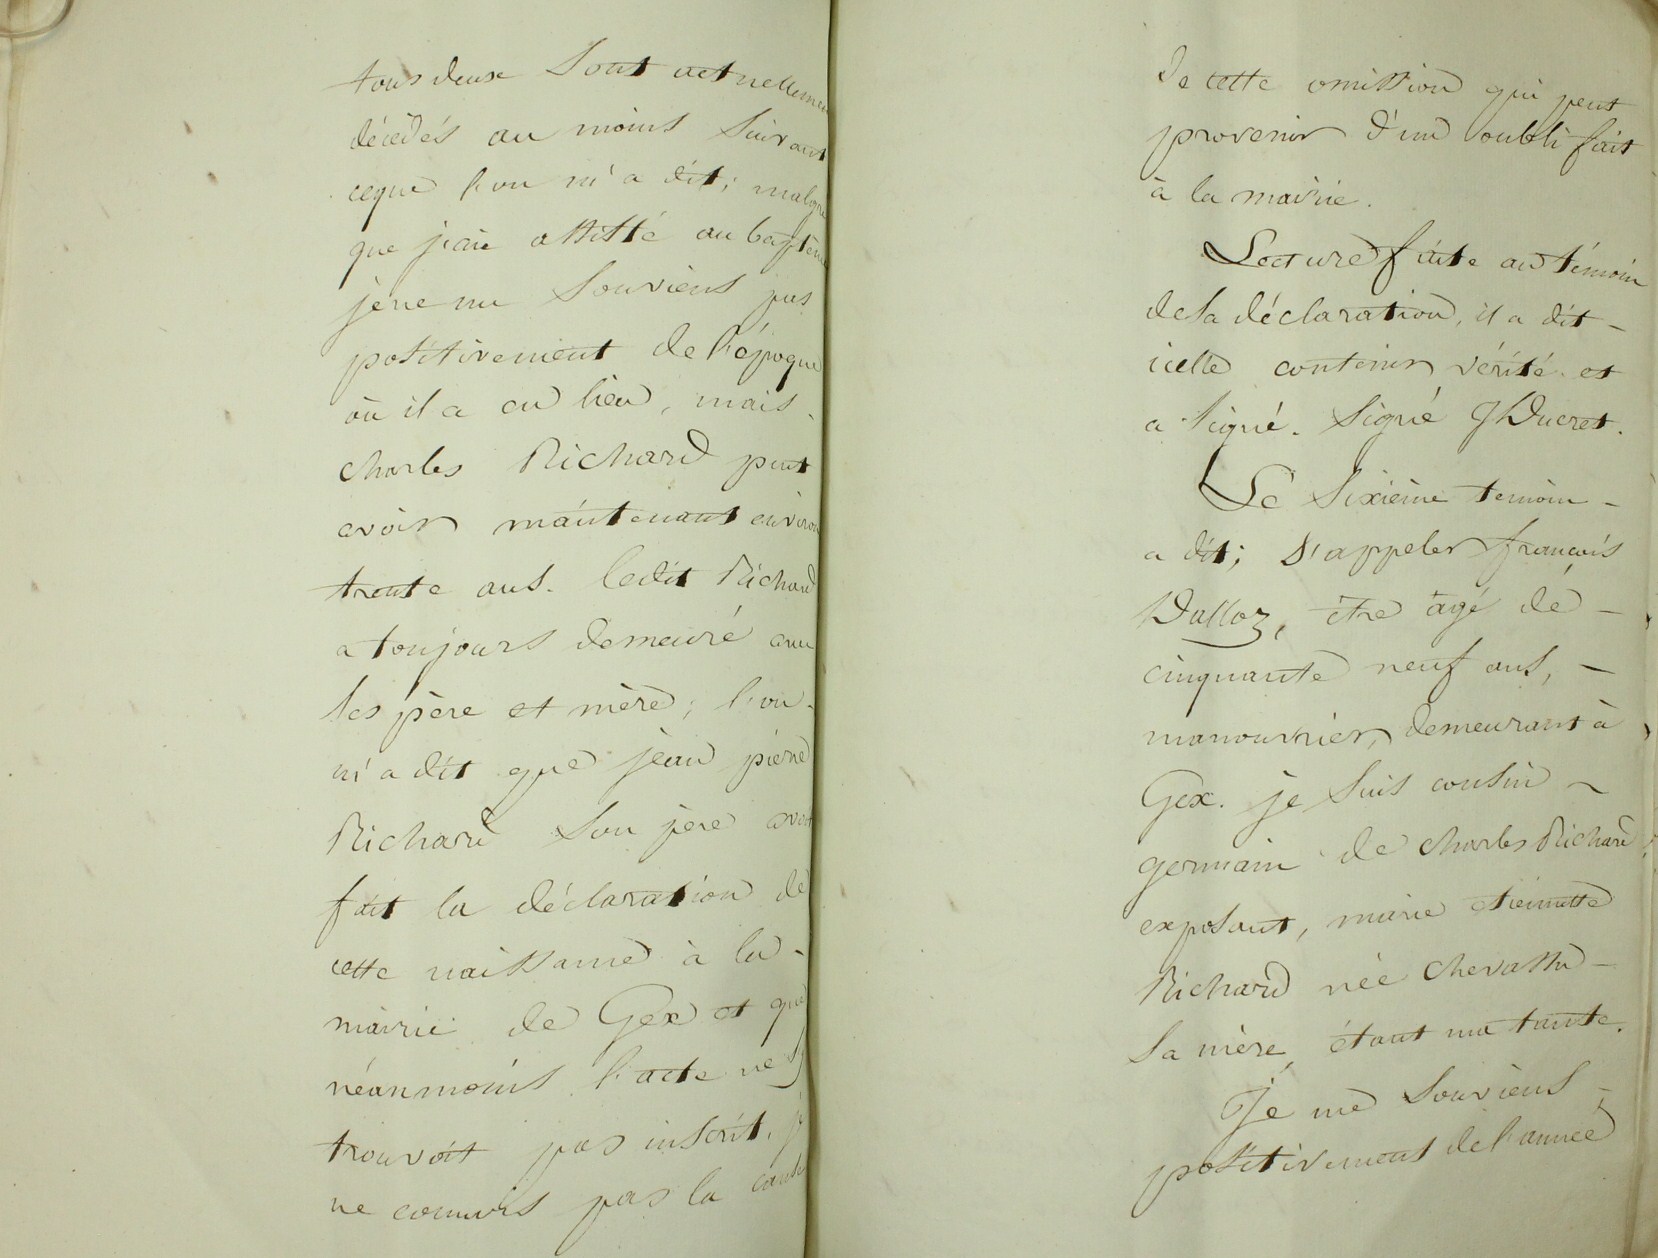 tous deux sont actuellement
décédés au moins suivant
ceque l'on m'a dit; malgré
que j'aie assisté au baptême
je ne me souviens pas
positivement de l'époque
où il a eu lieu, mais
charles Richard peut
avoir maintenant environ
trente ans. ledit Richard
a toujours demeuré avec
ses père et mère; l'on
m'a dit que jean pierre
Richard son père avoit
fait la déclaration de
cette naissance à la
mairie de Gex et que
néanmoins l'acte ne s'y
trouvoit pas inscrit. je
ne connois pas la cause
de cette omission qui peut
provenir d'un oubli fait
à la mairie.
Lecture faite au témoin
de sa déclaration, il a dit -
icelle contenir vérité et
a signé. Signé J Ducret.
Le sixième temoin -
a dit; s'appeler françois
Dalloz, être agé de -
cinquante neuf ans, -
manouvrier, demeurant à
Gex. je suis cousin -
germain de charles Richard
exposant, marie etiennette
Richard née chevassu -
sa mère, étant ma tante.
Je me souviens -
positivement de l'année